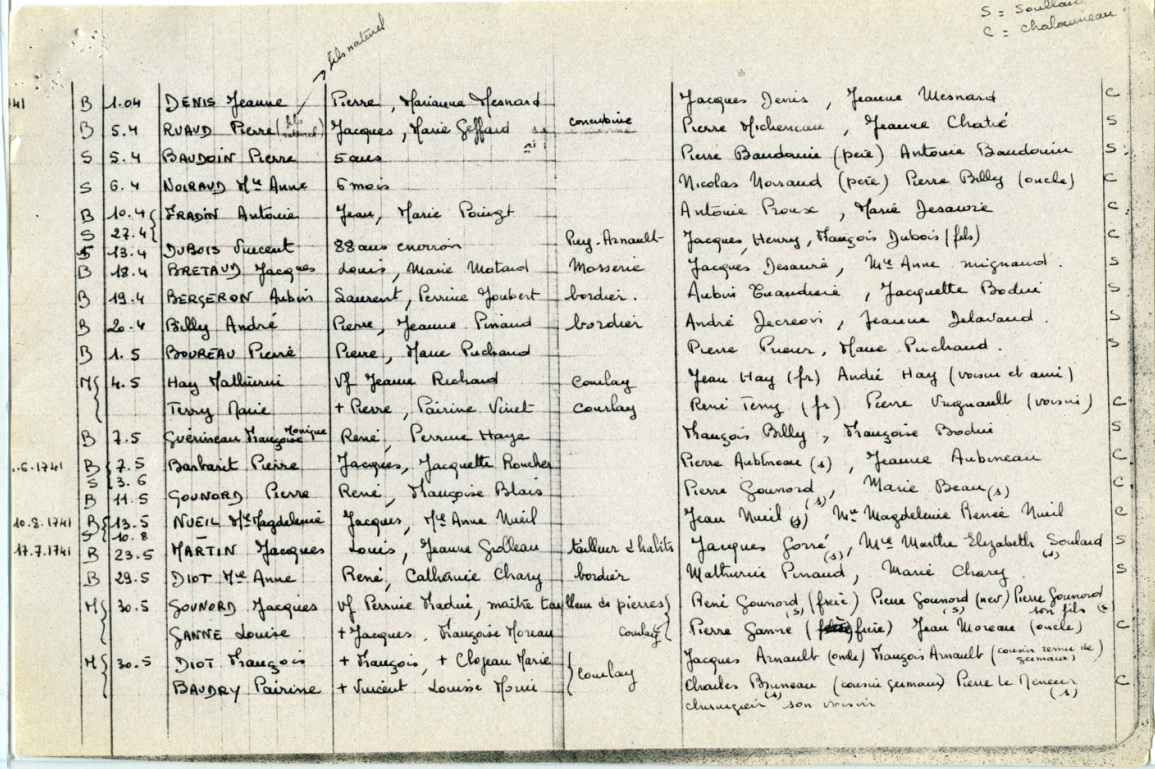 S = Soullard
C = Chalonneau
fils naturel
41 B 1.04 DENIS Jeanne Pierre, Marianne Mesnard Jacques Denis, Jeanne Mesnard C
B 5.4 RUAUD Pierre (fils naturel) Jacques, Marie Geffard concubine Pierre Micheneau, Jeanne Chatié S
S 5.4 BAUDOIN Pierre 5 ans Pierre Baudouin (père) Antoine Baudouin S
S 6.4 NOIRAUD Mie Anne 6 mois Nicolas Norraud (père) Pierre Billy (oncle) C
B 10.4 FRADIN Antoine Jean, Marie Poingt Antonie Proux, Marie Desavrie C
S 27.4
S 13.4 DUBOIS Vincent 88 ans environ Puy-Arnault Jacques, Henry, François Dubois (fils) C
B 18.4 BRETAUD Jacques Louis, Marie Motard Mosserie Jacques Desauré, Mie Anne mignaud. S
B 19.4 BERGERON Aubin Laurent, Perrine Joubert bordier. Aubin, Jacquette Bodin S
B 20.4 Billy André Pierre, Jeanne Pinaud bordier André, Jeanne Delavaud. S
B 1.5 BOUREAU Pierre Pierre, Marie Puchaud Pierre Prieur, Marie Puchaud. S
M 4.5 Hay Mathurin Vf Jeanne Richard Courlay Jean Hay (fr) André Hay (voisin et ami)
Terry Marie + Pierre, Péririne Vinet courlay René Terry (fr) Pierre Vrignault (voisin) C
B 7.5 Guérineau Françoise Monique René, Perrine Haye François Billy, Françoise Bodin S
1.6.1741 B 7.5 Barbarit Pierre Jacques, Jacquette Roucher Pierre Aubineau (s), Jeanne Aubineau C
S 3.6
B 11.5 GOUNORD Pierre René, Françoise Blais Pierre Gounord (s), Marie Beau (s) C
10.8.1741 B 13.5 NUEIL Mie Magdeleine Jacques, Mie Anne Nueil Jean Nueil (s) Mie Magdeleine Renée Nueil C
S 10.8
17.7.1741 B 23.5 MARTIN Jacques Louis, Jeanne Grolleau tailleur d'habits Jacques Gorré (s), Mie Marthe Elizabeth Soulard (s) S
B 29.5 DIOT Mie Anne René, Catherine Chary bordier Mathurin Pinaud, Marie Chary. S
M 30.5 GOUNORD Jacques Vf Perrine Madui, maître tailleur de pierres René Gounord (s) (frère) Pierre Gounord (s) (nev) Pierre Gounord son fils (s)
GANNE Louise + Jacques, Françoise Moreau Courlay Pierre Ganne (frère) Jean Moreau (oncle) C
M 30.5 DIOT François + François, + Clojeau Marie Jacques Arnault (oncle) François Arnault (cousin remué de germain)
BAUDRY Péririne + Vincent Louise Morin courlay Charles Bruneau (cousin germain) Pierre le Meneur (s) C
chirurgien (s) son voisin